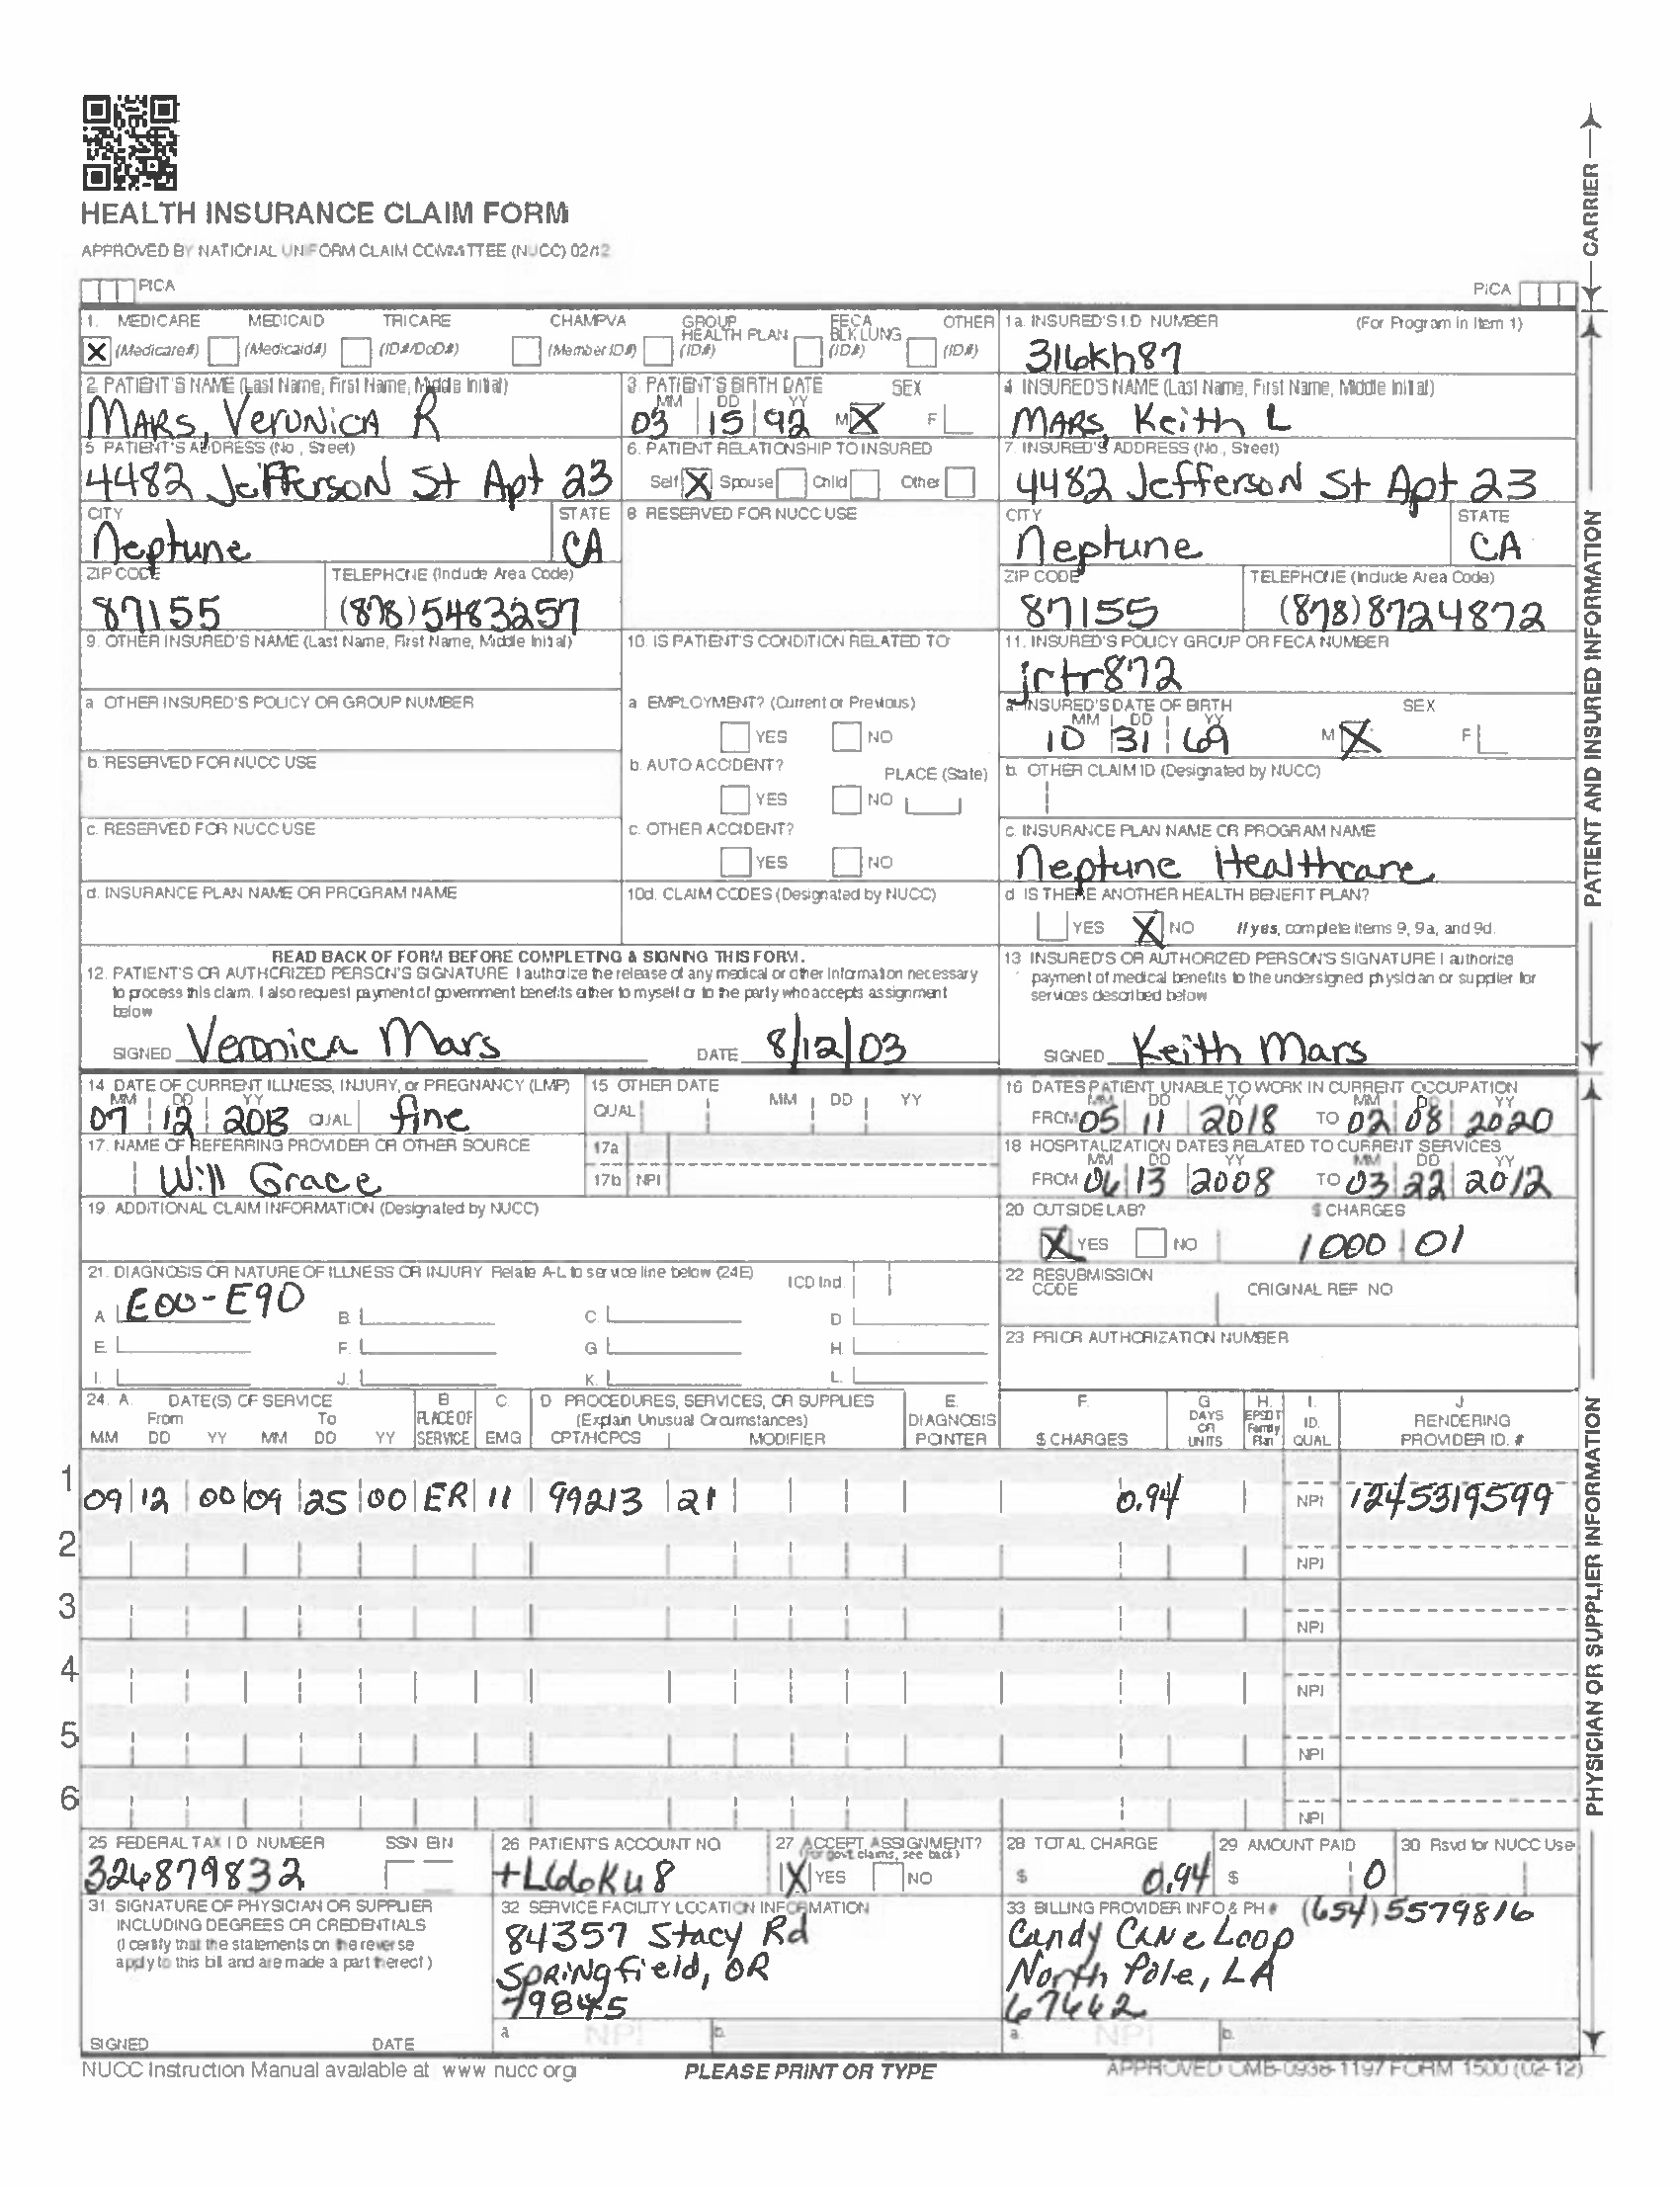 HEALTH INSURANCE CLAIM FORM
APPROVED BY NATIONAL UNIFORM CLAIM COMMITTEE (NUCC) 02/12
PICA
PICA
CARRIER
1. MEDICARE MEDICAID TRICARE CHAMPVA GROUP HEALTH PLAN FECA BLK LUNG OTHER
X (Medicare#) (Medicaid#) (ID#/DoD#) (Member ID#) (ID#) (ID#) (ID#)
1a. INSURED'S I.D. NUMBER (For Program in Item 1)
316kh87
2. PATIENT'S NAME (Last Name, First Name, Middle Initial)
MARS, Veronica R
3. PATIENT'S BIRTH DATE SEX
MM DD YY
03 15 92 M X F
4. INSURED'S NAME (Last Name, First Name, Middle Initial)
MARS, Keith L
5. PATIENT'S ADDRESS (No., Street)
4482 Jefferson St Apt 23
6. PATIENT RELATIONSHIP TO INSURED
Self X Spouse Child Other
7. INSURED'S ADDRESS (No., Street)
4482 Jefferson St Apt 23
CITY STATE
Neptune CA
8. RESERVED FOR NUCC USE
CITY STATE
Neptune CA
ZIP CODE TELEPHONE (Include Area Code)
87155 (878)5483257
ZIP CODE TELEPHONE (Include Area Code)
87155 (878)8724872
9. OTHER INSURED'S NAME (Last Name, First Name, Middle Initial)
10. IS PATIENT'S CONDITION RELATED TO
11. INSURED'S POLICY GROUP OR FECA NUMBER
jrtr872
a. OTHER INSURED'S POLICY OR GROUP NUMBER
a. EMPLOYMENT? (Current or Previous)
YES NO
a. INSURED'S DATE OF BIRTH SEX
MM DD YY
10 31 69 M X F
b. RESERVED FOR NUCC USE
b. AUTO ACCIDENT? PLACE (State)
YES NO
b. OTHER CLAIM ID (Designated by NUCC)
c. RESERVED FOR NUCC USE
c. OTHER ACCIDENT?
YES NO
c. INSURANCE PLAN NAME OR PROGRAM NAME
Neptune Healthcare
d. INSURANCE PLAN NAME OR PROGRAM NAME
10d. CLAIM CODES (Designated by NUCC)
d. IS THERE ANOTHER HEALTH BENEFIT PLAN?
YES X NO If yes, complete items 9, 9a, and 9d.
READ BACK OF FORM BEFORE COMPLETING & SIGNING THIS FORM.
12. PATIENT'S OR AUTHORIZED PERSON'S SIGNATURE I authorize the release of any medical or other information necessary
to process this claim. I also request payment of government benefits either to myself or to the party who accepts assignment
below
SIGNED Veronica Mars DATE 8/12/03
13. INSURED'S OR AUTHORIZED PERSON'S SIGNATURE I authorize
payment of medical benefits to the undersigned physician or supplier for
services described below
SIGNED Keith Mars
PATIENT AND INSURED INFORMATION
14. DATE OF CURRENT ILLNESS, INJURY, or PREGNANCY (LMP)
MM DD YY
07 12 2013 QUAL fine
15. OTHER DATE
QUAL MM DD YY
16. DATES PATIENT UNABLE TO WORK IN CURRENT OCCUPATION
MM DD YY MM DD YY
FROM 05 11 2018 TO 02 08 2020
17. NAME OF REFERRING PROVIDER OR OTHER SOURCE
Will Grace
17a
17b NPI
18. HOSPITALIZATION DATES RELATED TO CURRENT SERVICES
MM DD YY MM DD YY
FROM 06 13 2008 TO 03 22 2012
19. ADDITIONAL CLAIM INFORMATION (Designated by NUCC)
20. OUTSIDE LAB? $ CHARGES
X YES NO 1000 01
21. DIAGNOSIS OR NATURE OF ILLNESS OR INJURY Relate A-L to service line below (24E) ICD Ind.
A. E00-E90 B. C. D.
E. F. G. H.
I. J. K. L.
22. RESUBMISSION CODE ORIGINAL REF. NO.
23. PRIOR AUTHORIZATION NUMBER
24. A. DATE(S) OF SERVICE B. C. D. PROCEDURES, SERVICES, OR SUPPLIES E. F. G. H. I. J.
From To PLACE OF (Explain Unusual Circumstances) DIAGNOSIS DAYS OR EPSDT Family ID. RENDERING
MM DD YY MM DD YY SERVICE EMG CPT/HCPCS MODIFIER POINTER $ CHARGES UNITS Plan QUAL PROVIDER ID. #
1 09 12 00 09 25 00 ER 11 99213 21 0.94 NPI 1245319599
2 NPI
3 NPI
4 NPI
5 NPI
6 NPI
25. FEDERAL TAX I.D. NUMBER SSN EIN
326879832
26. PATIENT'S ACCOUNT NO.
+L66Ku8
27. ACCEPT ASSIGNMENT?
(For govt. claims, see back)
X YES NO
28. TOTAL CHARGE
$ 0.94
29. AMOUNT PAID
$ 0
30. Rsvd for NUCC Use
31. SIGNATURE OF PHYSICIAN OR SUPPLIER
INCLUDING DEGREES OR CREDENTIALS
(I certify that the statements on the reverse
apply to this bill and are made a part thereof.)
SIGNED DATE
32. SERVICE FACILITY LOCATION INFORMATION
84357 Stacy Rd
Springfield, OR
79845
a. NPI b.
33. BILLING PROVIDER INFO & PH # (654)5579816
Candy Cane Loop
North Pole, LA
67662
a. NPI b.
PHYSICIAN OR SUPPLIER INFORMATION
NUCC Instruction Manual available at: www.nucc.org
PLEASE PRINT OR TYPE
APPROVED OMB-0938-1197 FORM 1500 (02-12)